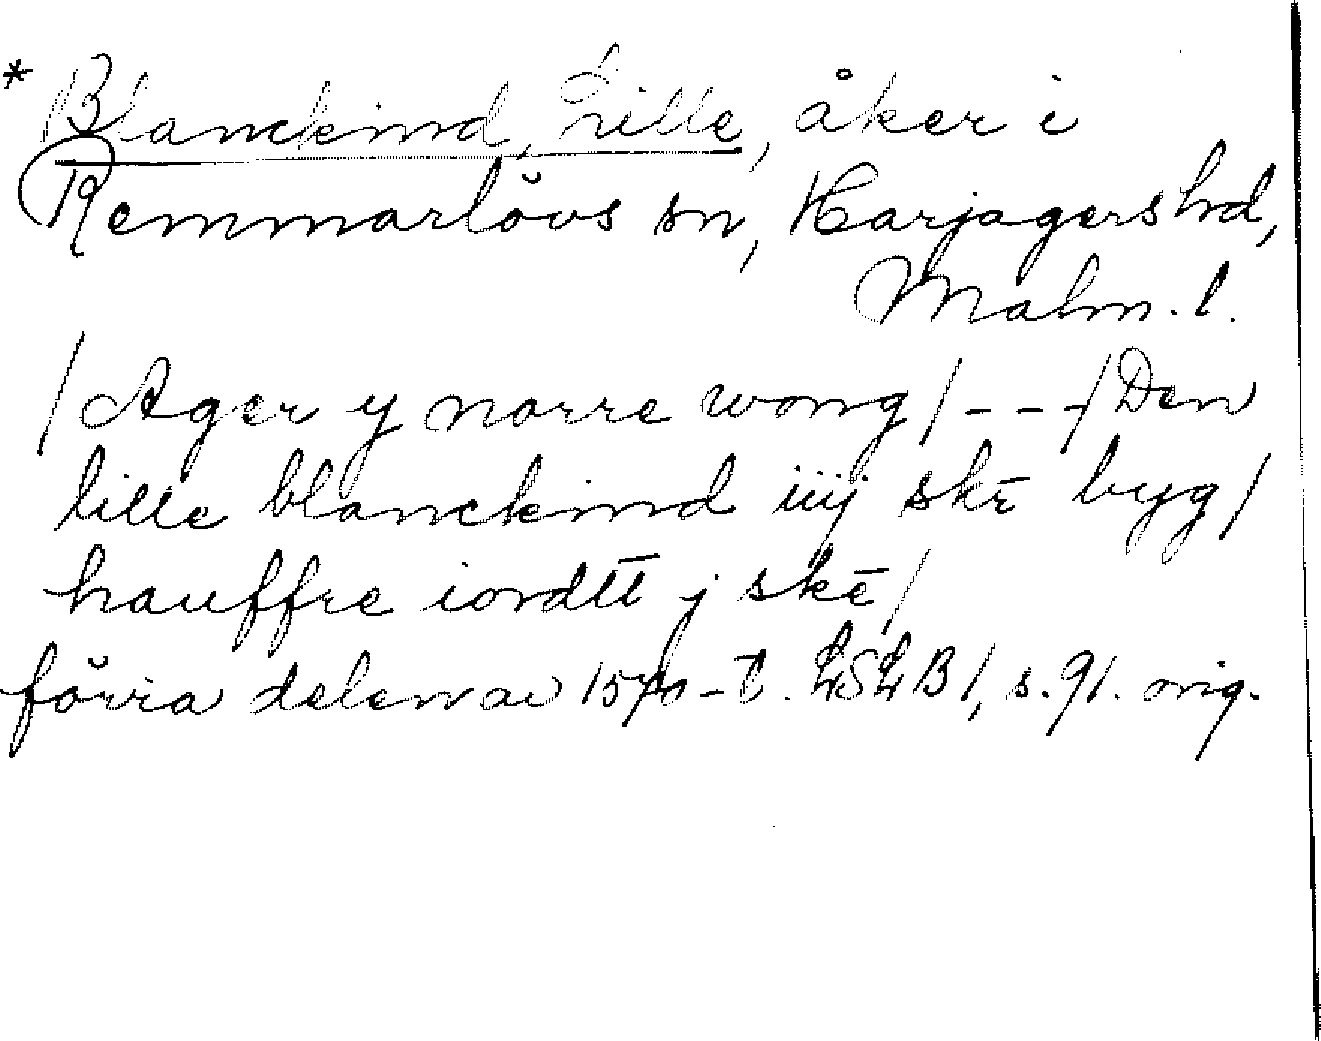 * Blanckind, Lille, åker i
Remmarlövs sn, Harjagers hd,
Malm. l.
/Ager y norre wong/---/Den
lille blanckind iiij skē byg/
hauffre iordtt j skē/
förra delen av 1570-t. LSLB 1, s. 91. orig.